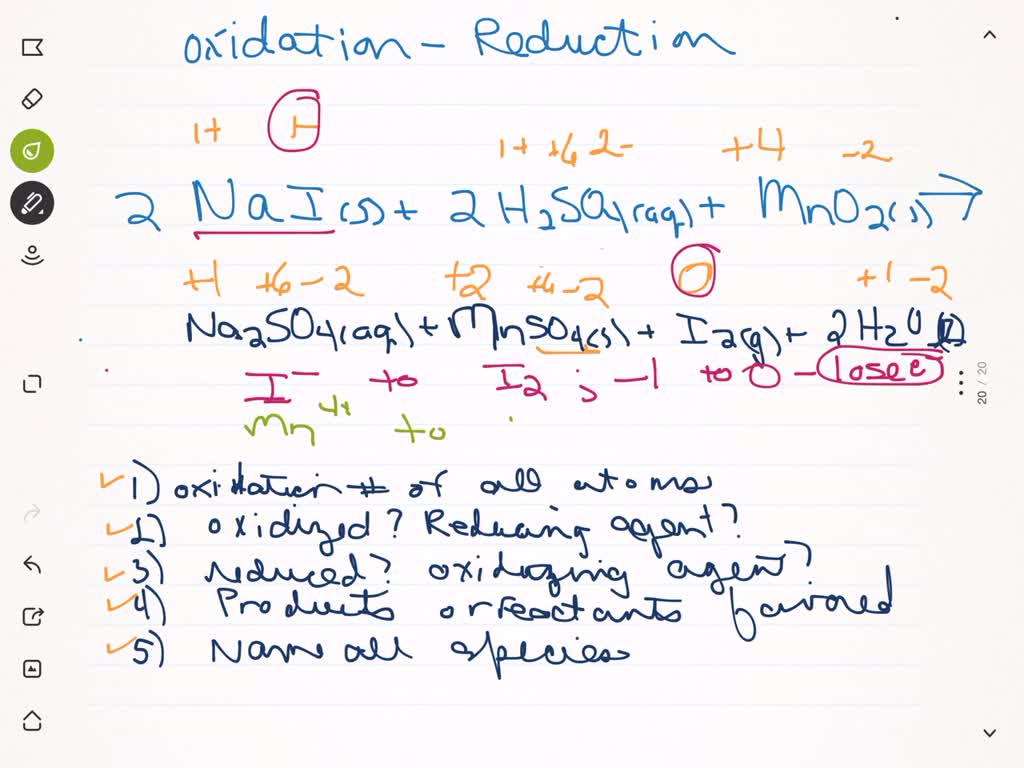 oxidation – Reduction
1+ 1- 1+ +6 2- +4 -2
2 NaI(s) + 2H2SO4(aq) + MnO2(s) →
+1 +6 -2 +2 +6 -2 0 +1 -2
Na2SO4(aq) + MnSO4(s) + I2(g) + 2H2O(l)
I⁻ to I2 ; -1 to 0 - lose e
Mn⁴⁺ to
1) oxidation # of all atoms
2) oxidized? Reducing agent?
3) reduced? oxidizing agent?
4) Products or reactants favored
5) Name all species
20 / 20